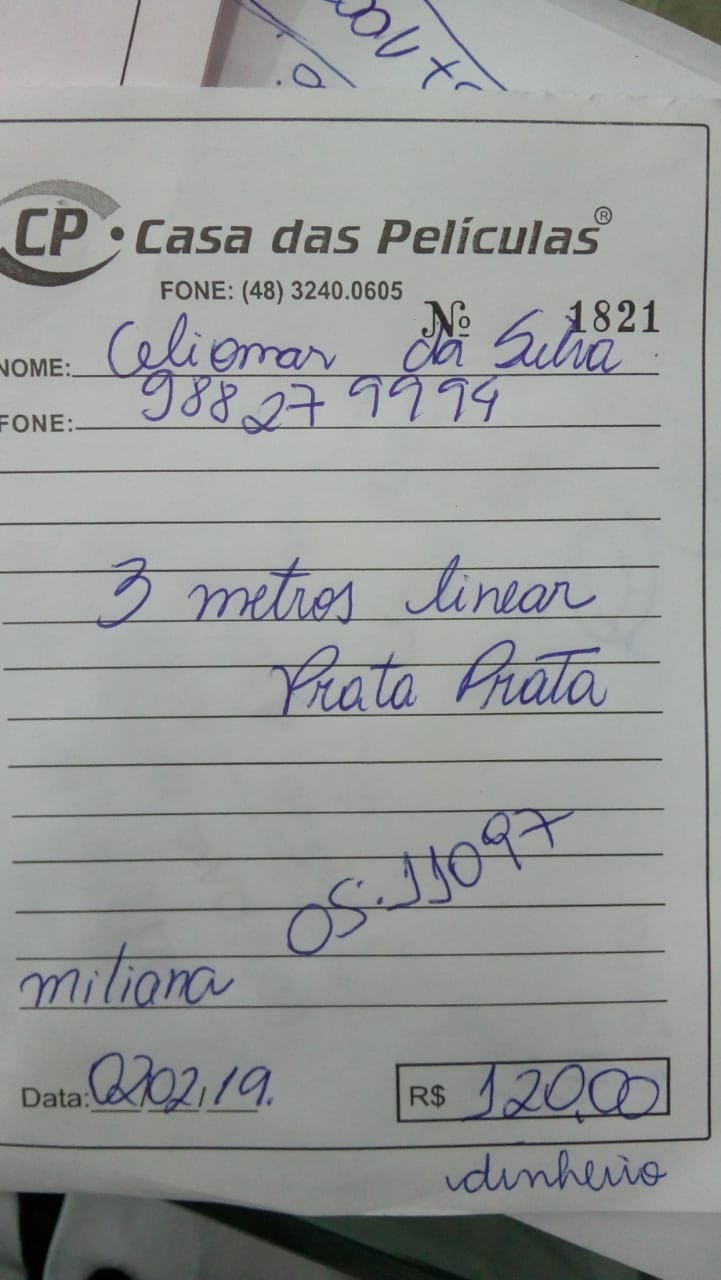 CP • Casa das Películas®
FONE: (48) 3240.0605
Nº 1821
NOME: Celiomar da Silva
FONE: 98827 9994
3 metros linear
Prata Prata
OS.11097
miliana
Data: 02/02/19.
R$ 120,00
dinheiro